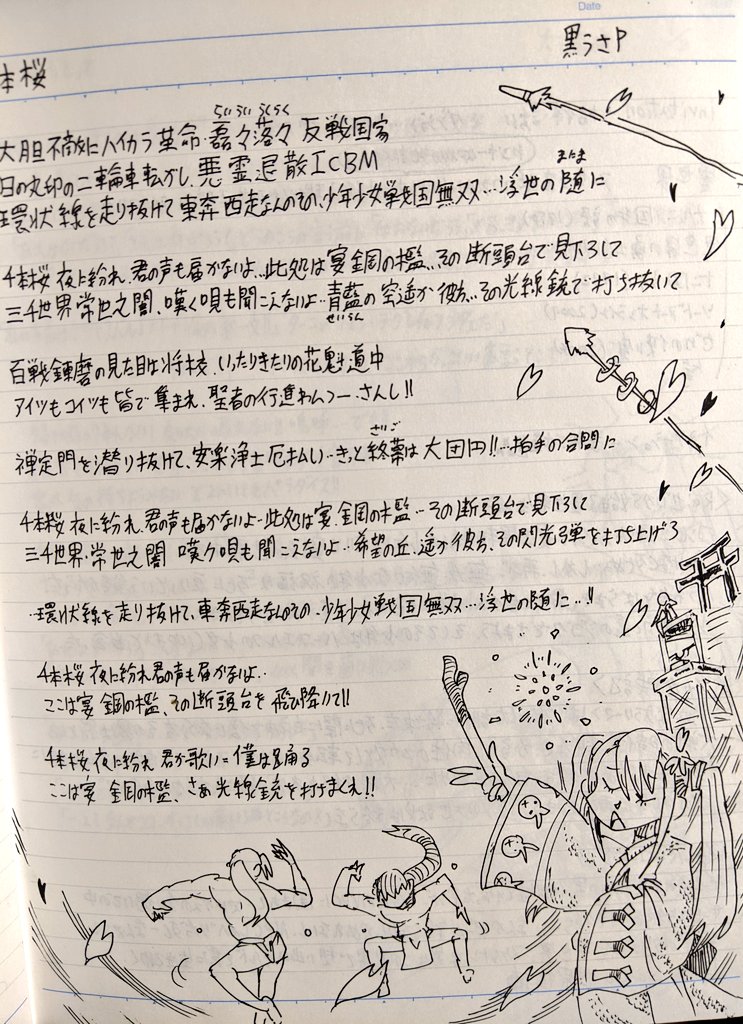 Date
黒うさP
本桜
らいらいらくらく
大胆不敵にハイカラ革命 磊々落々 反戦国家
日の丸印の二輪車転がし、悪霊退散ICBM
まにま
環状線を走り抜けて東奔西走なんのその、少年少女戦国無双…浮世の随に
千本桜 夜に紛れ、君の声も届かないよ…此処は宴 鋼の檻…その断頭台で見下ろして
三千世界 常世之闇、嘆く唄も聞こえないよ…青藍の空遥か彼方…その光線銃で打ち抜いて
せいらん
百戦錬磨の見た目は将校、いったりきたりの花魁道中
アイツもコイツも皆で集まれ、聖者の行進わんつーさんし!!
さいご
禅定門を潜り抜けて、安楽浄土厄払い…きっと終幕は大団円!!…拍手の合間に
千本桜 夜に紛れ、君の声も届かないよ…此処は宴 鋼の檻…その断頭台で見下ろして
三千世界、常世之闇 嘆く唄も聞こえないよ…希望の丘、遥か彼方、その閃光弾を打ち上げろ
…環状線を走り抜けて、東奔西走なんのその…少年少女戦国無双…浮世の随に…!!
千本桜 夜に紛れ君の声も届かないよ…
ここは宴 鋼の檻、その断頭台を飛び降りて!!
千本桜 夜に紛れ 君が歌い 僕は踊る
ここは宴 鋼の檻、さあ光線銃を打ちまくれ!!